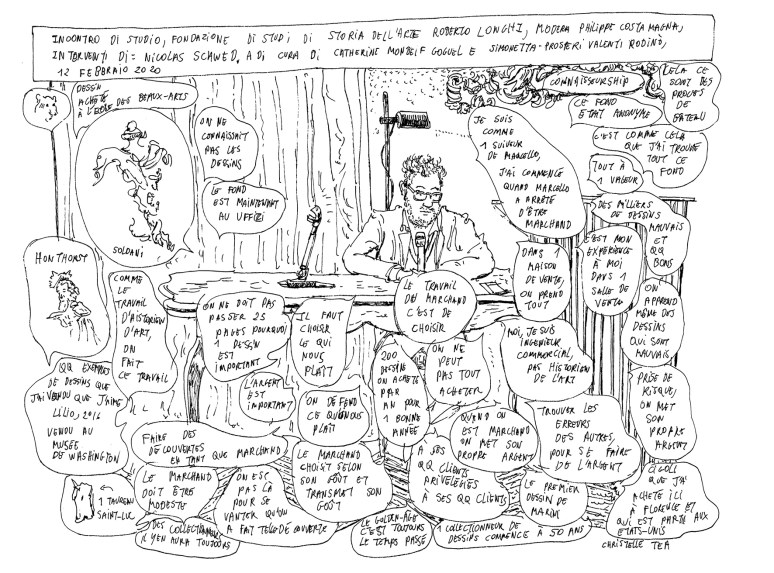 INCONTRO DI STUDIO, FONDAZIONE DI STUDI DI STORIA DELL'ARTE ROBERTO LONGHI, MODERA PHILIPPE COSTAMAGNA,
INTERVENTI DI= NICOLAS SCHWED, A DI CURA DI CATHERINE MONBEIF GOGUEL E SIMONETTA PROSPERI VALENTI RODINÒ,
12 FEBBRAIO 2020
DESSIN
ACHETÉ
À L'ECOLE DES BEAUX-ARTS
SOLDANI
ON NE
CONNAISSAIT
PAS LES
DESSINS
LE FOND
EST MAINTENANT
AU UFFIZI
CONNAISSEURSHIP
CELA CE
SONT DES
PREUVES
DE
GATEAU
CE FOND
ETAIT ANONYME
C'EST COMME CELA
QUE J'AI TROUVÉ
TOUT CE
FOND
JE SUIS
COMME
1 SUIVEUR
DE MARCELLO,
J'AI COMMENCÉ
QUAND MARCELLO
A ARRÊTÉ
D'ÊTRE
MARCHAND
TOUT À
1 VALEUR
DES MILLIERS
DE DESSINS
MAUVAIS
ET
QQ
BONS
C'EST MON
EXPÉRIENCE
À MOI
DANS 1
SALLE DE
VENTE
DANS 1
MAISON
DE VENTE,
ON PREND
TOUT
ON
APPREND
MÊME DES
DESSINS
QUI SONT
MAUVAIS
HONTHORST
COMME
LE
TRAVAIL
D'HISTORIEN
D'ART,
ON
FAIT
CE TRAVAIL
ON NE DOIT PAS
PASSER 25
PAGES POURQUOI
1 DESSIN
EST
IMPORTANT
IL FAUT
CHOISIR
LE QUI
NOUS
PLAÎT
LE TRAVAIL
DE MARCHAND
C'EST DE
CHOISIR
200
DESSINS
ON ACHETE
PAR
AN POUR
1 BONNE
ANNÉE
ON NE
PEUT
PAS TOUT
ACHETER
MOI, JE SUIS
INGENIEUR
COMMERCIAL,
PAS HISTORIEN
DE L'ART
PRISE DE
RISQUE,
ON MET
SON
PROPRE
ARGENT
QQ EXEMPLES
DE DESSINS QUE
J'AI VENDU QUE J'AIME
LILIO, 2016
VENDU AU
MUSÉE
DE WASHINGTON
L'ARGENT
EST
IMPORTANT
ON DEFEND
CE QUI NOUS
PLAÎT
FAIRE DES
DÉCOUVERTES
EN TANT QUE MARCHAND
QUAND ON
EST MARCHAND
ON MET SON
PROPRE ARGENT
TROUVER LES
ERREURS
DES AUTRES,
POUR SE FAIRE
DE L'ARGENT
1 TAUREAU
SAINT-LUC
LE MARCHAND
DOIT ÊTRE
MODESTE
ON EST
PAS LÀ
POUR SE
VANTER QU'ON
A FAIT TELLE DÉCOUVERTE
LE MARCHAND
CHOISIT SELON
SON GOÛT ET
TRANSMET SON
GOÛT
À SES
QQ CLIENTS
PRIVILEGIÉS
À SES QQ CLIENTS
LE PREMIER
DESSIN DE
MARINI
QUE J'AI
ACHETÉ ICI
À FLORENCE ET
QUI EST PARTI AUX
ETATS-UNIS
DES COLLECTIONNEURS
IL Y EN AURA TOUJOURS
LE GOLDEN-AGE
C'EST TOUJOURS
LE TEMPS PASSÉ
1 COLLECTIONNEUR DE
DESSINS COMMENCE À 50 ANS
CHRISTELLE TEA